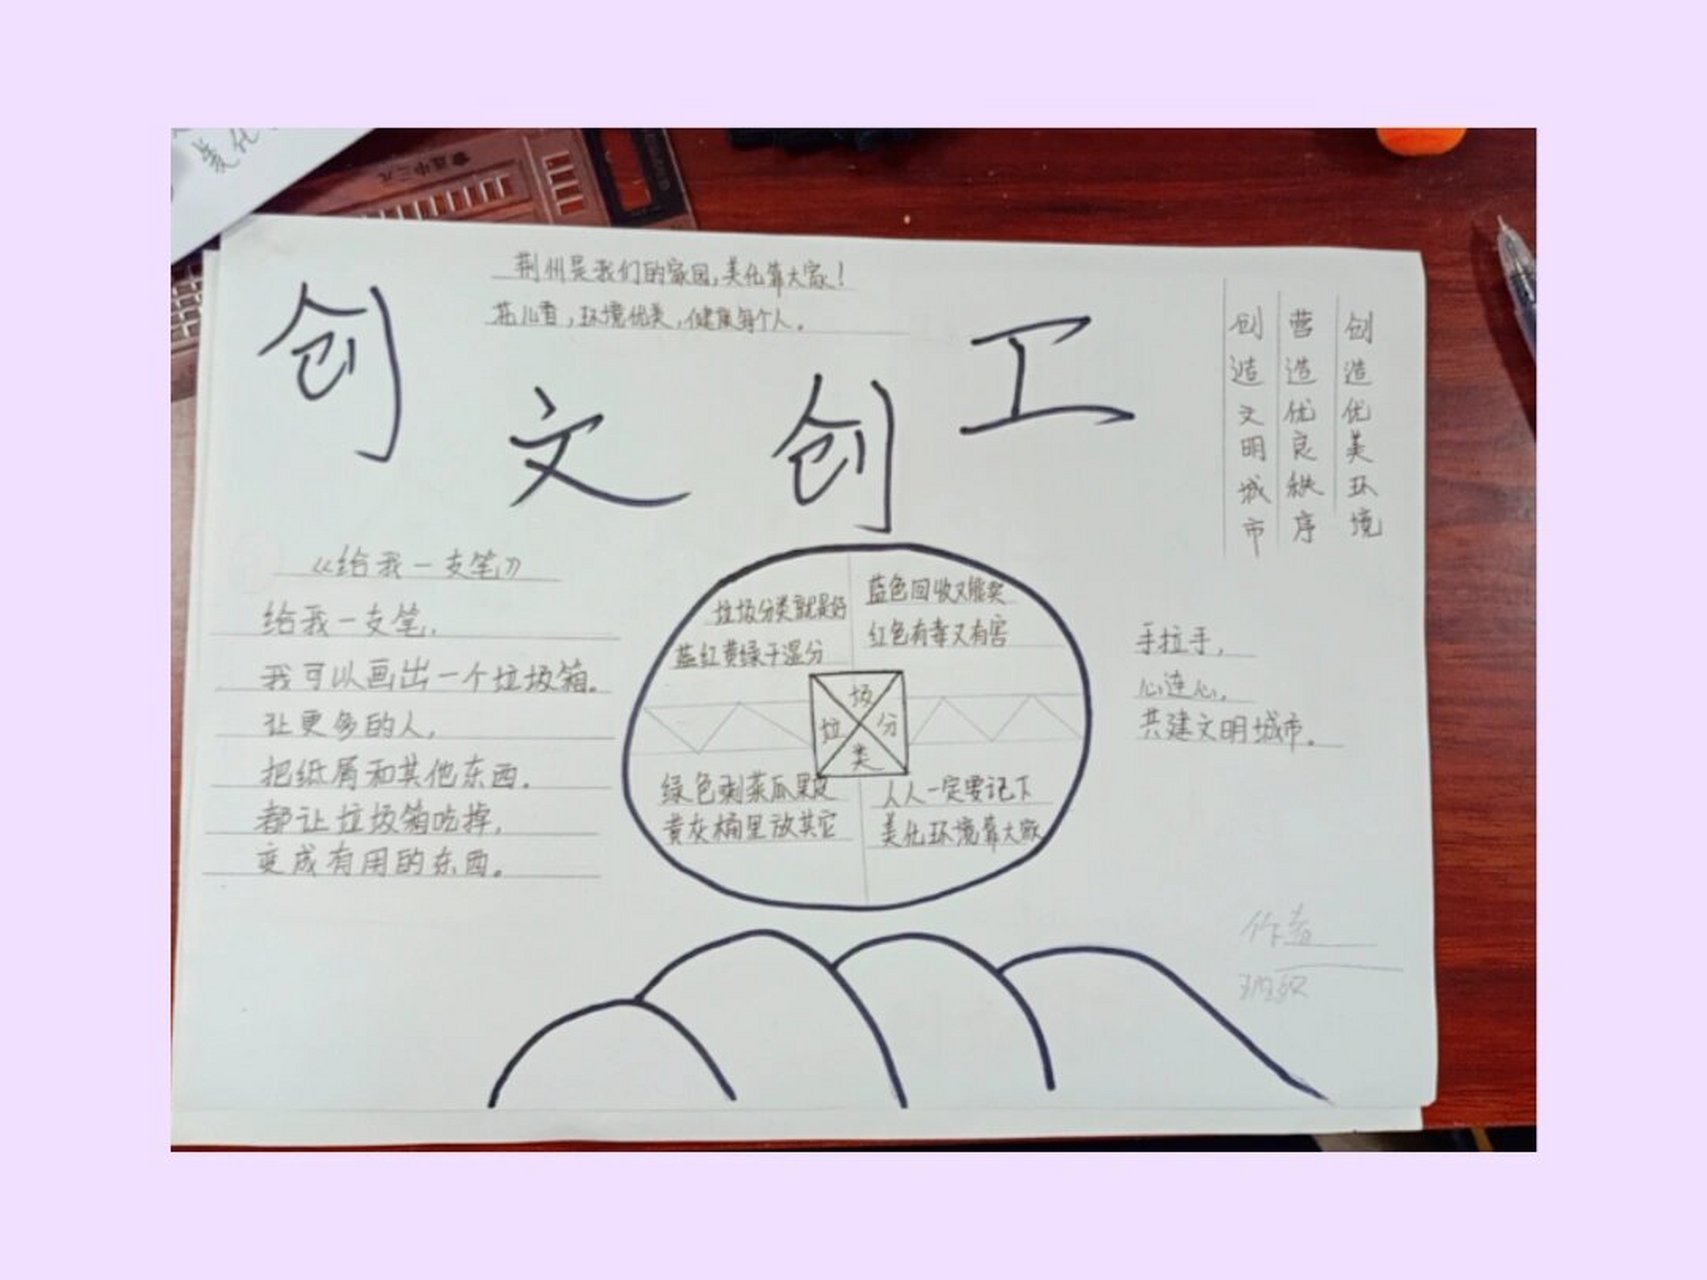 美化
荆州是我们的家园,美化靠大家!
花儿香,环境优美,健康每个人。
创文创工
创造优美环境
营造优良秩序
创造文明城市
《给我一支笔》
给我一支笔,
我可以画出一个垃圾箱。
让更多的人,
把纸屑和其他东西。
都让垃圾箱吃掉,
变成有用的东西。
垃圾分类就是好
蓝红黄绿干湿分
蓝色回收又能卖
红色有毒又有害
垃圾分类
绿色剩菜瓜果皮
黄灰桶里放其它
人人一定要记下
美化环境靠大家
手拉手,
心连心,
共建文明城市。
作者
班级